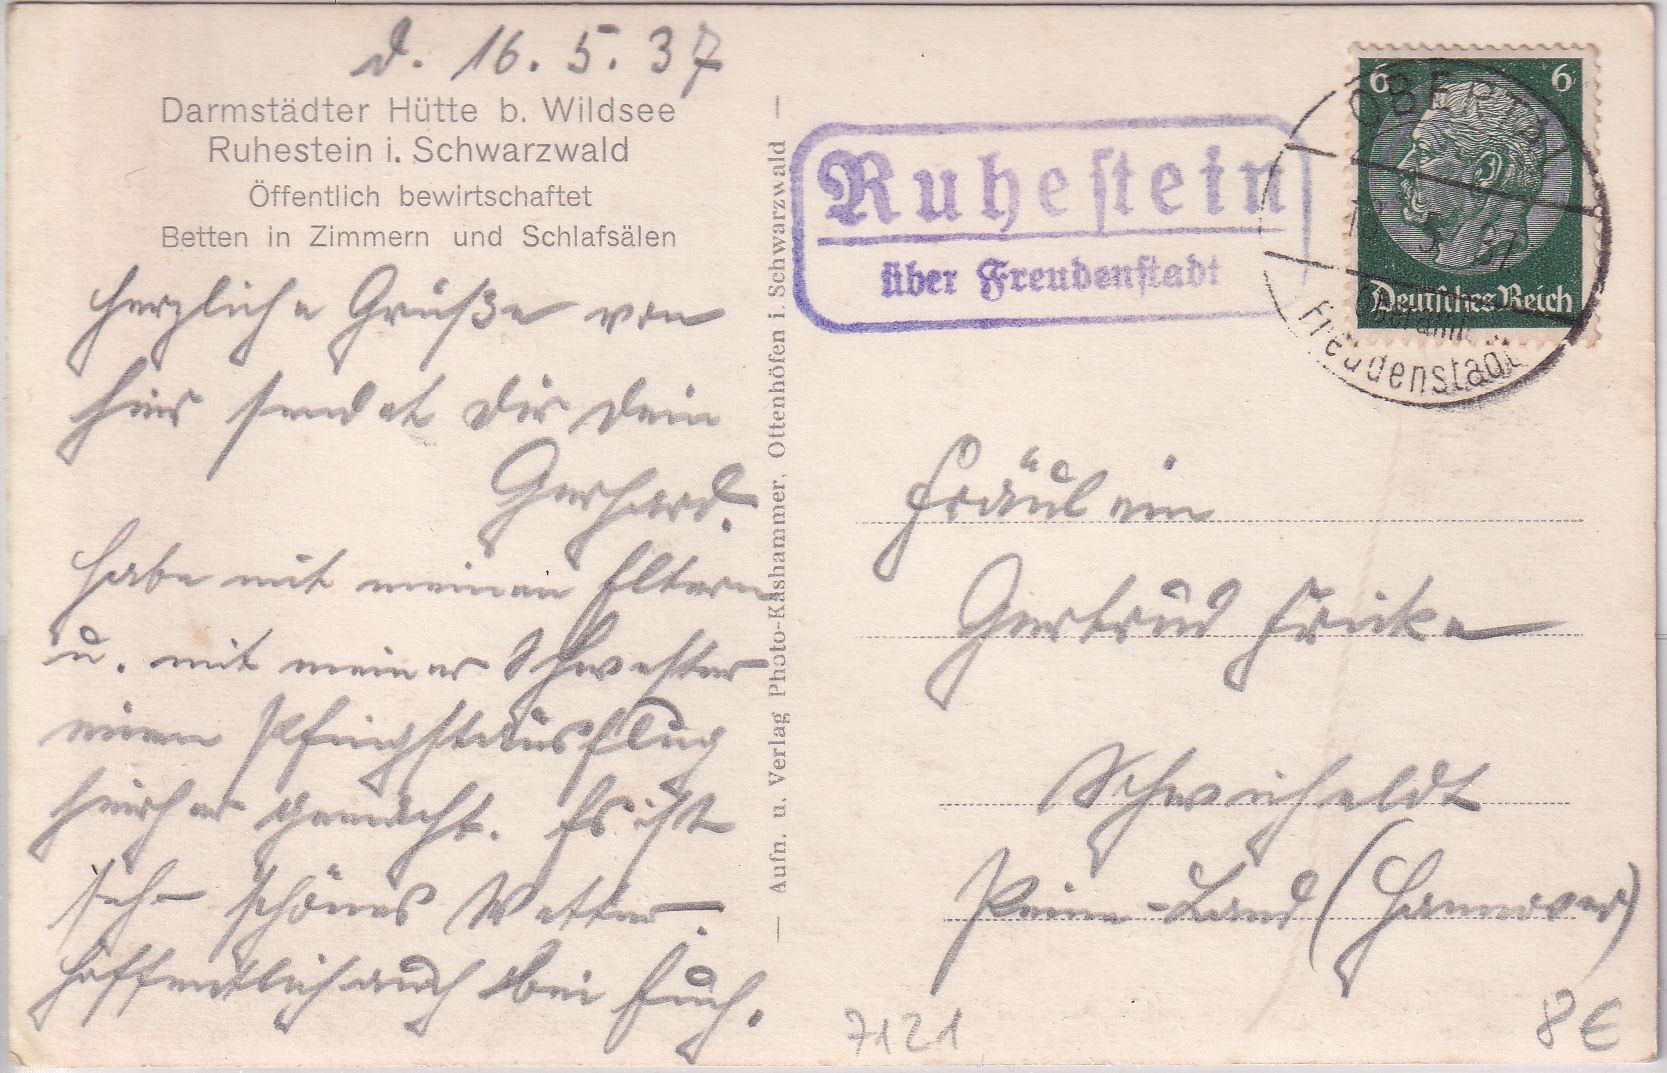 d. 16.5.37
Darmstädter Hütte b. Wildsee
Ruhestein i. Schwarzwald
Öffentlich bewirtschaftet
Betten in Zimmern und Schlafsälen
Herzliche Grüße von
hier sendet Dir Dein
Gerhard.
Habe mit meinen Eltern
u. mit meiner Schwester
einen Pfingstausflug
hierher gemacht. Es ist
sehr schönes Wetter.
Hoffentlich auch bei Euch.
Aufn. u. Verlag Photo-Käshammer, Ottenhöfen i. Schwarzwald
Ruhestein
über Freudenstadt
6 6
Deutsches Reich
OBERTAL
5 37
Freudenstadt
Fräulein
Gertrud Fricke
Schwicheldt
Peine-Land (Hannover)
7121
8€